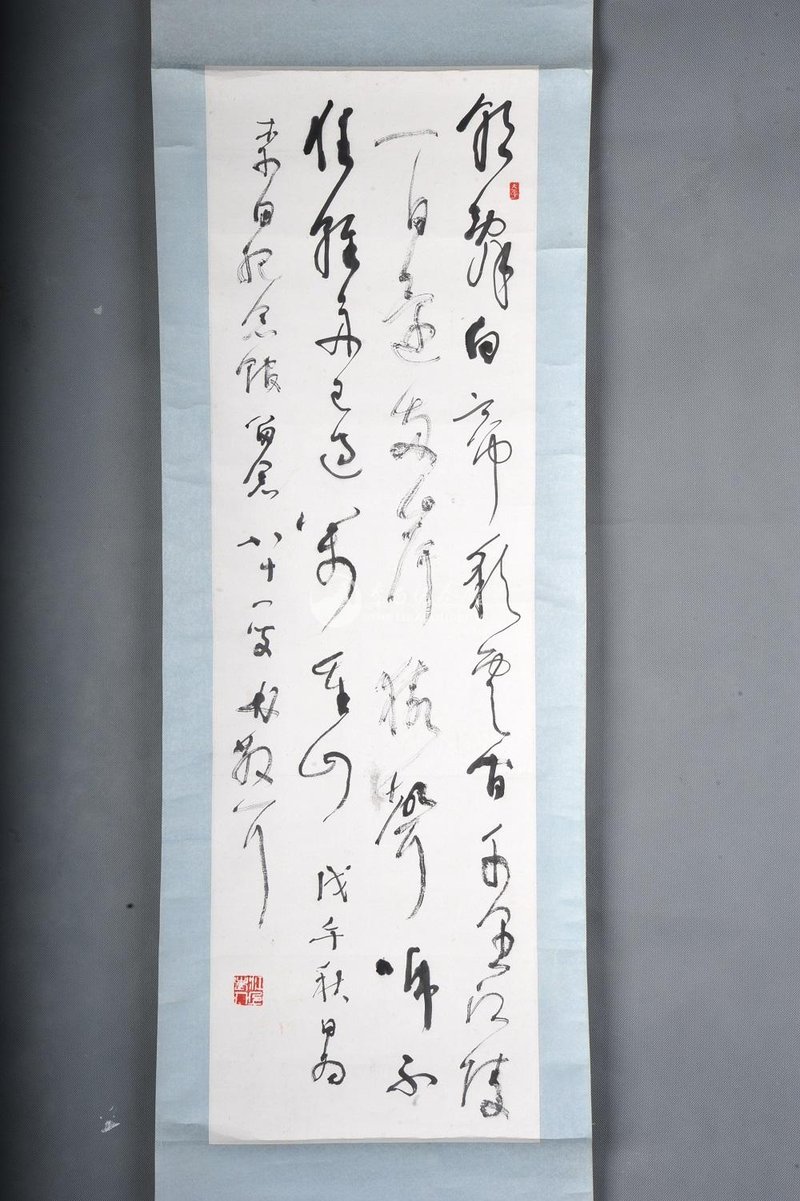 朝辭白帝彩雲間千里江陵
一日還兩岸猿聲啼不
住輕舟已過萬重山 戊午秋日為
李白紀念館留念 八十一叟林散耳